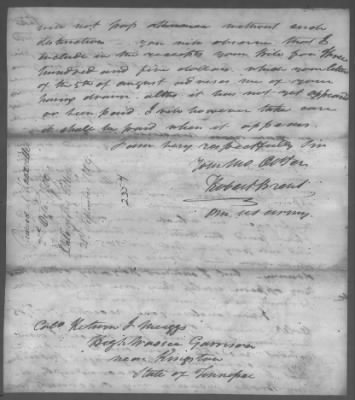 will not pass attendance without such
distinction. you will observe that I
include in the receipts your bill for three
hundred and five dollars which your letter
of the 5th of august advises me of your
having drawn. altho it has not yet appeared
or been paid. I will however take care
it shall be paid when it appears.
I am very respectfully Sir
Your Mo. Ob. Ser
Robert Brent
PM US army
Colo Return J Meigs
High Wassee Garrison
near Kingston
State of Tennessee
2254